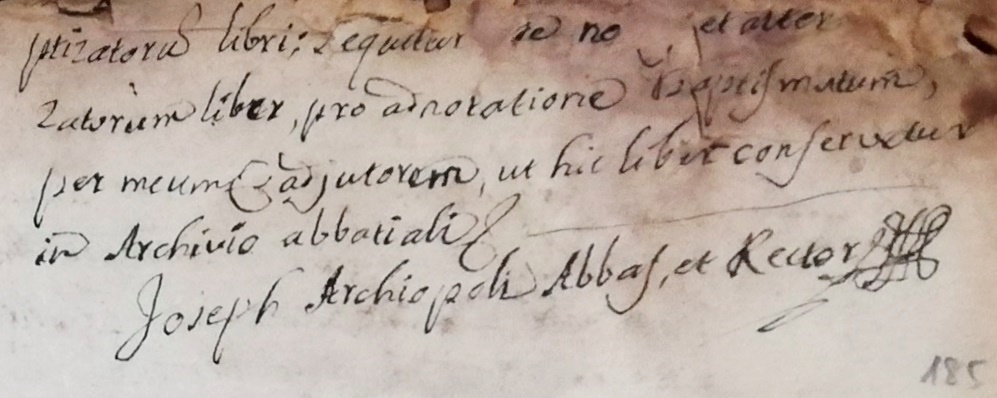 ptizatorũ libri; sequitur et alter
zatorum liber, pro adnotatione Baptismatum,
per meum adjutorem, ut hic liber conservetur
in Archivio abbatiali
Joseph Archiopoli Abbas, et Rector
185